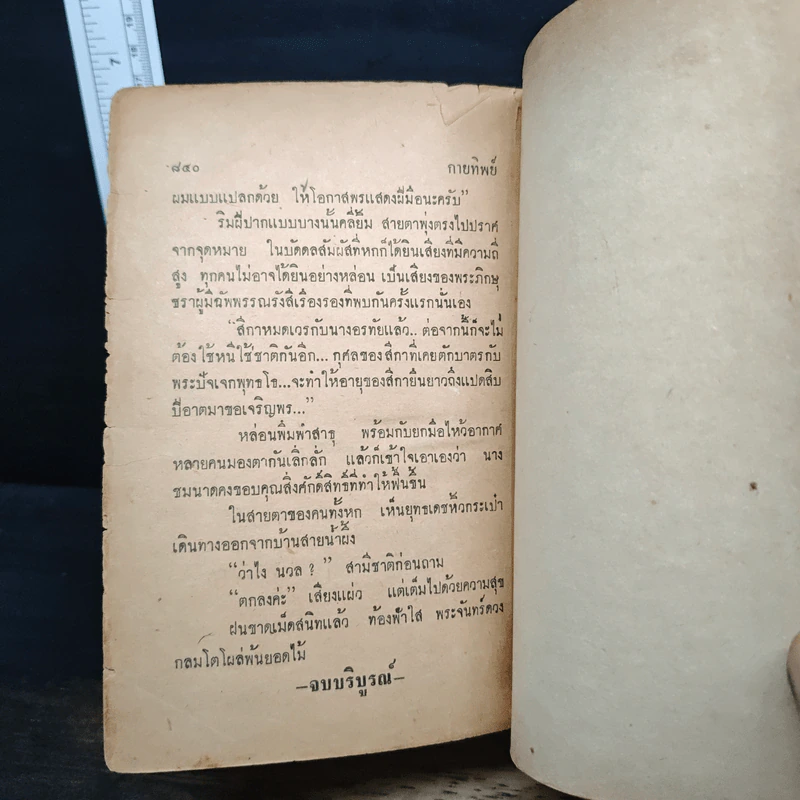 ๘๔๐ กายทิพย์
ผมแบบแปลกด้วย ให้โอกาสพรแสดงฝีมือนะครับ”
ริมฝีปากแบบบางนั้นคลี่ยิ้ม สายตาพุ่งตรงไปปราศ
จากจุดหมาย ในบัดดลสัมผัสที่หกก็ได้ยินเสียงที่มีความถี่
สูง ทุกคนไม่อาจได้ยินอย่างหล่อน เป็นเสียงของพระภิกษุ
ชราผู้มีฉัพพรรณรังสีเรืองรองที่พบกันครั้งแรกนั่นเอง
“สีกาหมดเวรกับนางอรทัยแล้ว.. ต่อจากนี้ก็จะไม่
ต้องใช้หนี้ใช้ชาติกันอีก... กุศลของสีกาที่เคยตักบาตรกับ
พระปัจเจกพุทธโธ...จะทำให้อายุของสีกายืนยาวถึงแปดสิบ
ปีอาตมาขอเจริญพร...”
หล่อนพึมพำสาธุ พร้อมกับยกมือไหว้อากาศ
หลายคนมองตากันเลิ่กลั่ก แล้วก็เข้าใจเอาเองว่า นาง
ชมนาดคงขอบคุณสิ่งศักดิ์สิทธิ์ที่ทำให้ฟื้นขึ้น
ในสายตาของคนทั้งหก เห็นยุทธเดชหิ้วกระเป๋า
เดินทางออกจากบ้านสายน้ำผึ้ง
“ว่าไง นวล ? ” สามีชาติก่อนถาม
“ตกลงค่ะ” เสียงแผ่ว แต่เต็มไปด้วยความสุข
ฝนขาดเม็ดสนิทแล้ว ท้องฟ้าใส พระจันทร์ดวง
กลมโตโผล่พ้นยอดไม้
–จบบริบูรณ์–
7
18
19